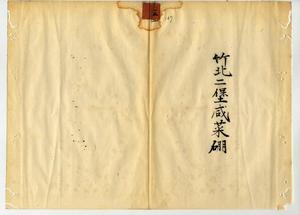 竹北二堡咸菜硼